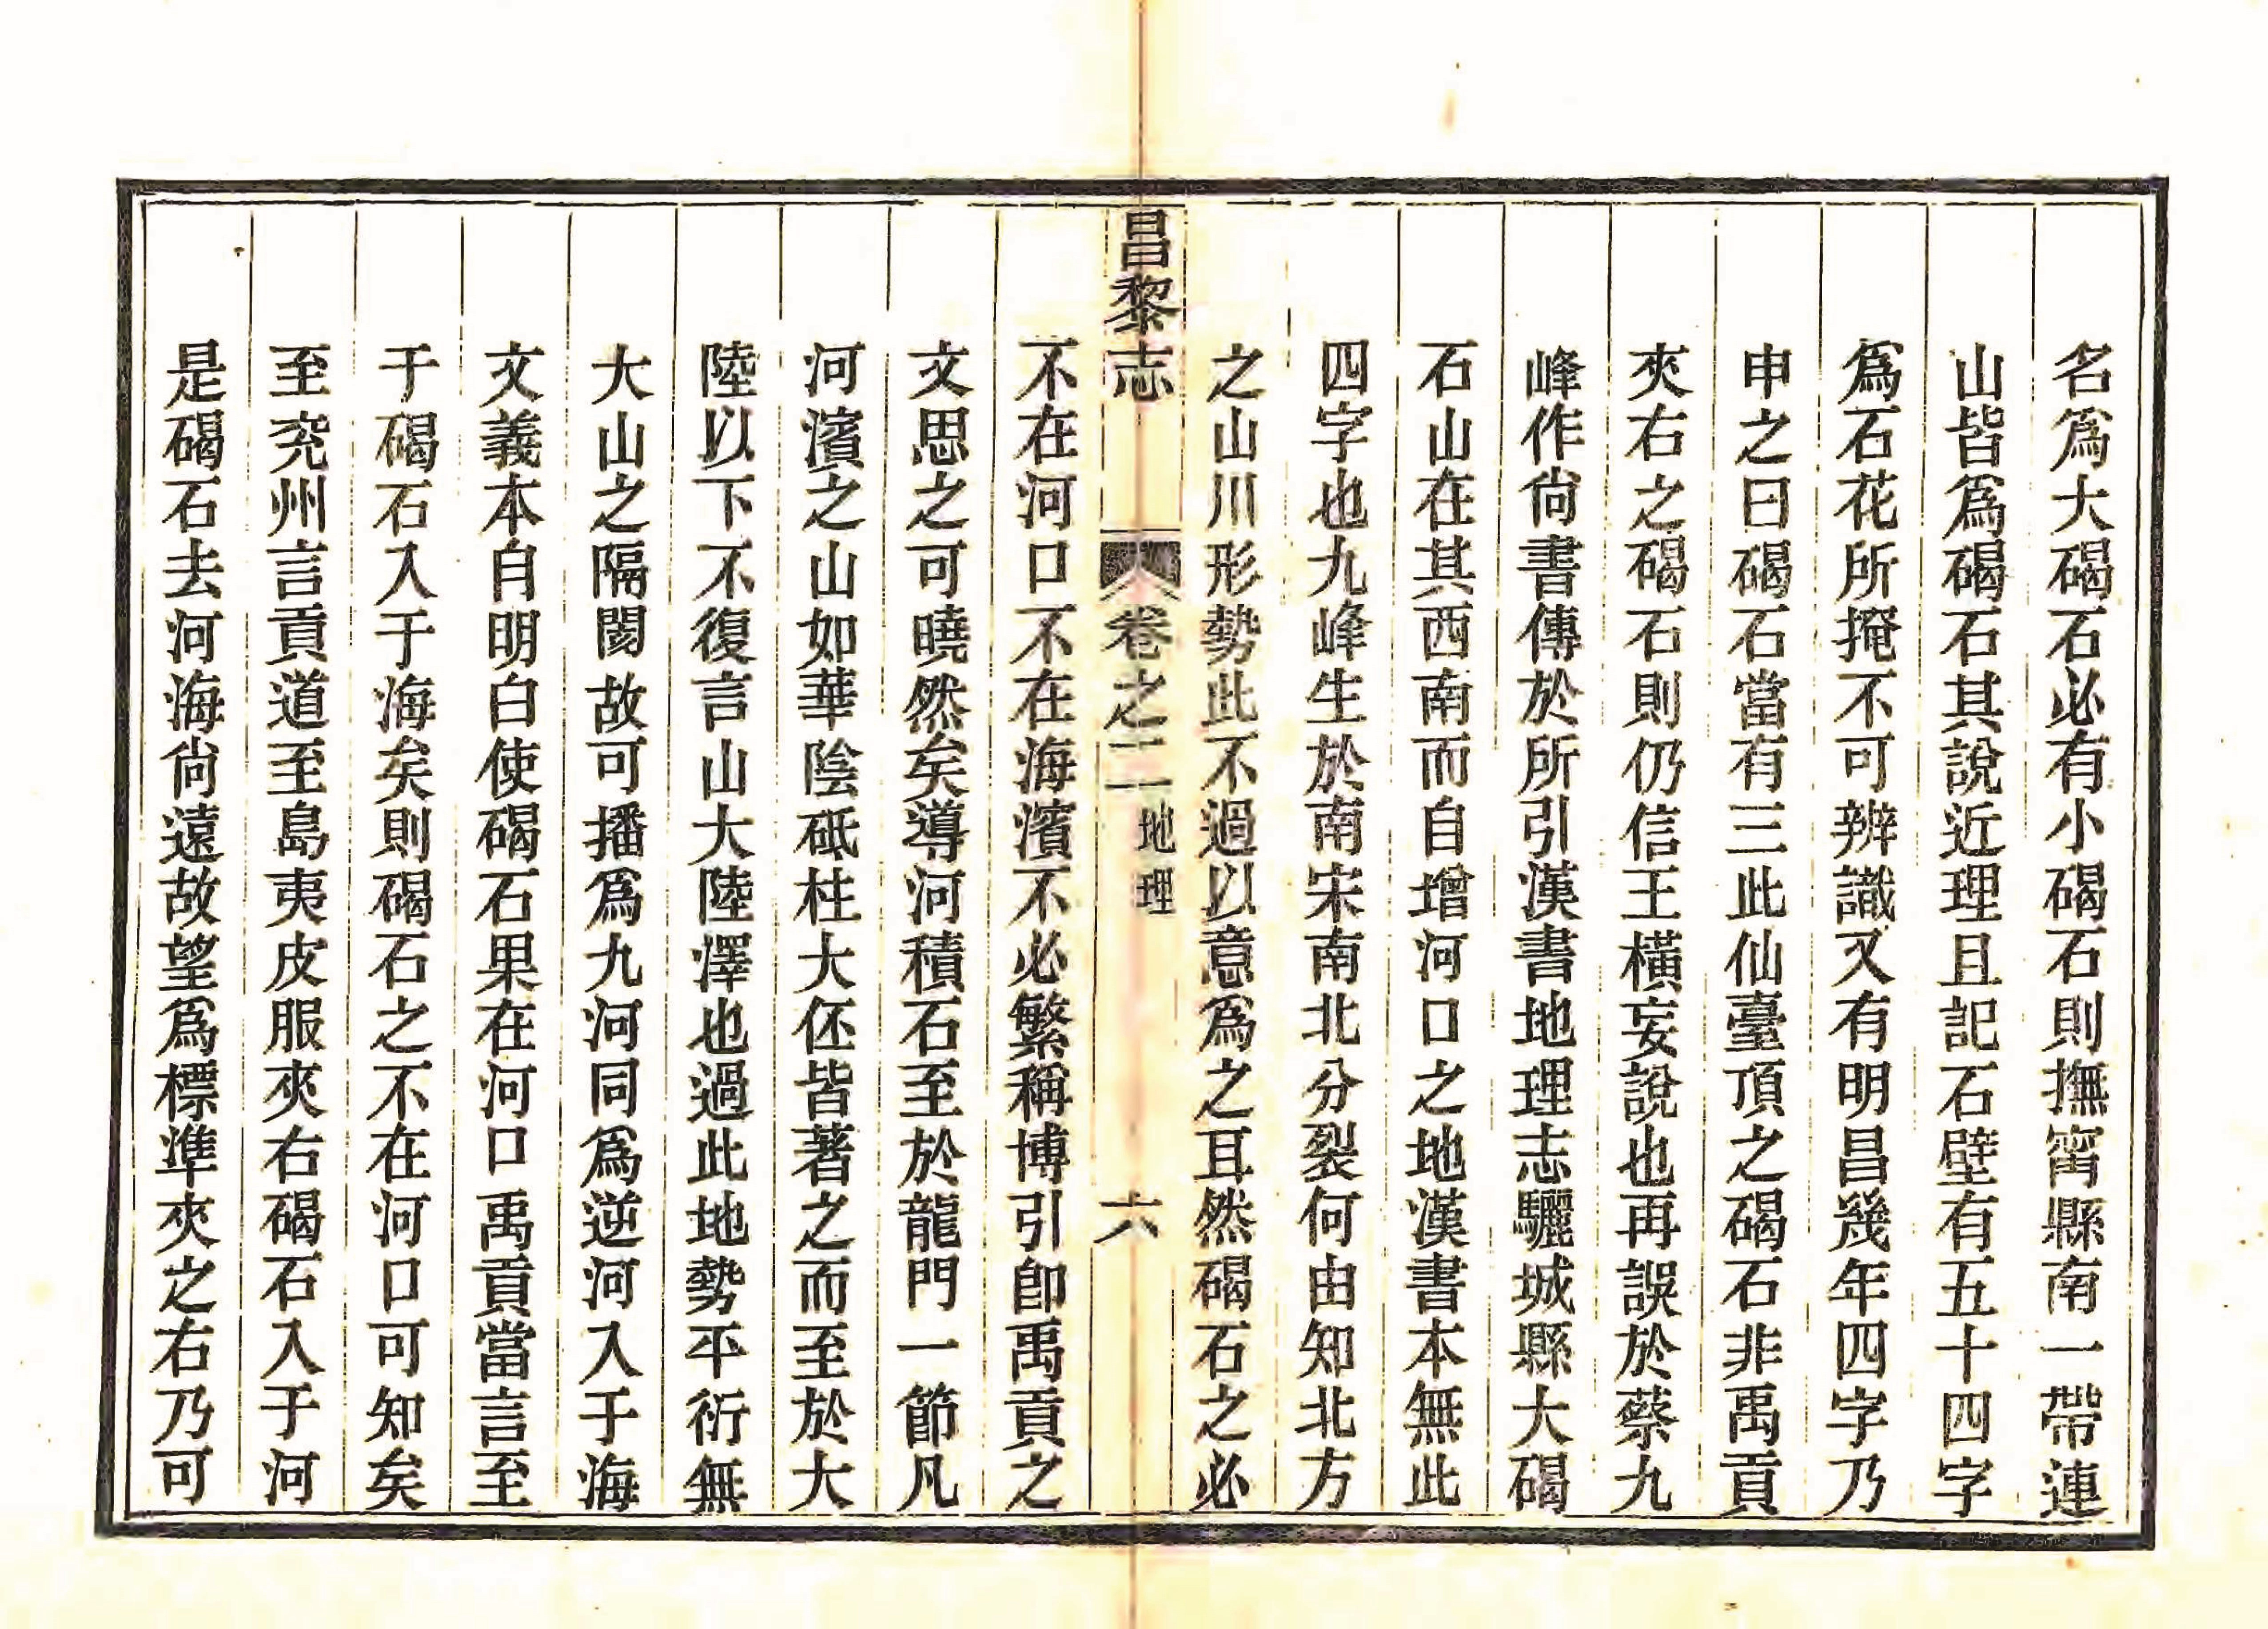 名爲大碣石必有小碣石則撫甯縣南一帶連
山皆爲碣石其說近理且記石壁有五十四字
爲石花所掩不可辨識又有明昌幾年四字乃
申之曰碣石當有三此仙臺頂之碣石非禹貢
夾右之碣石則仍信王橫妄說也再誤於蔡九
峰作尙書傳於所引漢書地理志驪城縣大碣
石山在其西南而自增河口之地漢書本無此
四字也九峰生於南宋南北分裂何由知北方
之山川形勢此不過以意爲之耳然碣石之必
昌黎志 卷之二 地理 六
不在河口不在海濱不必繁稱博引卽禹貢之
文思之可曉然矣導河積石至於龍門一節凡
河濱之山如華陰砥柱大伾皆著之而至於大
陸以下不復言山大陸澤也過此地勢平衍無
大山之隔閡故可播爲九河同爲逆河入于海
文義本自明白使碣石果在河口禹貢當言至
于碣石入于海矣則碣石之不在河口可知矣
至兖州言貢道至島夷皮服夾右碣石入于河
是碣石去河海尙遠故望爲標準夾之右乃可